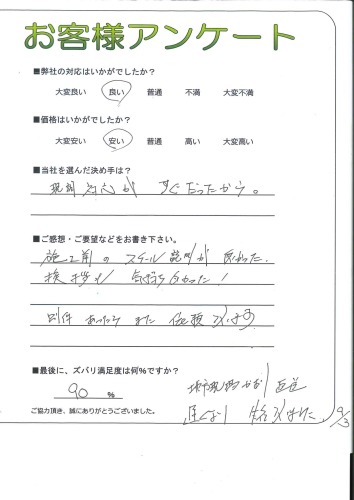 お客様アンケート
■弊社の対応はいかがでしたか？
大変良い 良い 普通 不満 大変不満
■価格はいかがでしたか？
大変安い 安い 普通 高い 大変高い
■当社を選んだ決め手は？
現調 対応が すぐだったから。
■ご感想・ご要望などをお書き下さい。
施工前の スケール 説明が 良かった。
挨拶も 気持ち良かった！
別件 あったら また 依頼
■最後に、ズバリ満足度は何％ですか？
90 ％
ご協力頂き、誠にありがとうございました。
9/3